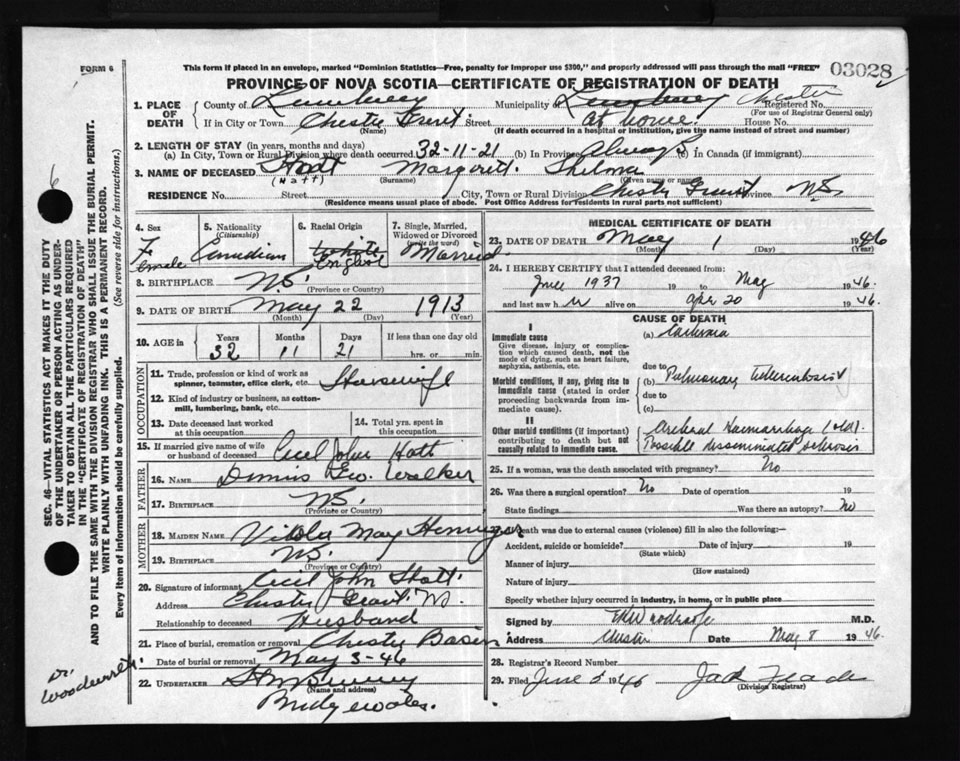 FORM 6
This form if placed in an envelope, marked "Dominion Statistics—Free, penalty for improper use $300," and properly addressed will pass through the mail "FREE"
03028
PROVINCE OF NOVA SCOTIA—CERTIFICATE OF REGISTRATION OF DEATH
1. PLACE OF DEATH
County of Lunenburg Municipality of Lunenburg Chester Registered No.
(For use of Registrar General only)
If in City or Town Chester Grant Street at home. House No.
(Name) (If death occurred in a hospital or institution, give the name instead of street and number)
2. LENGTH OF STAY (in years, months and days)
(a) In City, Town or Rural Division where death occurred 32-11-21 (b) In Province Always (c) In Canada (if immigrant)
3. NAME OF DECEASED Hatt Margaret Thelma
(Hatt) (Surname) (Given name or names)
RESIDENCE No. Street City, Town or Rural Division Chester Grant Province NS.
(Residence means usual place of abode. Post Office Address for residents in rural parts not sufficient)
4. Sex
F
Female
5. Nationality
(Citizenship)
Canadian
6. Racial Origin
White
English
7. Single, Married, Widowed or Divorced
(write the word)
Married
8. BIRTHPLACE NS.
(Province or Country)
9. DATE OF BIRTH May 22 1913
(Month) (Day) (Year)
10. AGE in Years Months Days If less than one day old
32 11 21 hrs. or min.
OCCUPATION
11. Trade, profession or kind of work as spinner, teamster, office clerk, etc. Housewife
12. Kind of industry or business, as cotton-mill, lumbering, bank, etc.
13. Date deceased last worked at this occupation
14. Total yrs. spent in this occupation
15. If married give name of wife or husband of deceased Cecil John Hatt
FATHER
16. NAME Dennis Geo. Walker
17. BIRTHPLACE NS.
(Province or Country)
MOTHER
18. MAIDEN NAME Viola May Hennigar
19. BIRTHPLACE NS.
(Province or Country)
20. Signature of informant Cecil John Hatt.
Address Chester Grant N.
Relationship to deceased Husband
21. Place of burial, cremation or removal Chester Basin
Date of burial or removal May 3-46
22. UNDERTAKER
(Name and address)
Bridgewater.
MEDICAL CERTIFICATE OF DEATH
23. DATE OF DEATH May 1 1946
(Month) (Day) (Year)
24. I HEREBY CERTIFY that I attended deceased from:
June 1937 19 to May 1946
and last saw her alive on Apr 20 1946.
CAUSE OF DEATH
I
Immediate cause
Give disease, injury or complication which caused death, not the mode of dying, such as heart failure, asphyxia, asthenia, etc.
(a) Cachexia
due to
Morbid conditions, if any, giving rise to immediate cause (stated in order proceeding backwards from immediate cause).
(b) Pulmonary tuberculosis
due to
(c)
II
Other morbid conditions (if important) contributing to death but not causally related to immediate cause.
Cerebral Haemorrhage (old).
Possible disseminated sclerosis
25. If a woman, was the death associated with pregnancy? No
26. Was there a surgical operation? No Date of operation 19
State findings Was there an autopsy? No
death was due to external causes (violence) fill in also the following:—
Accident, suicide or homicide? Date of injury 19
(State which)
Manner of injury
(How sustained)
Nature of injury
Specify whether injury occurred in industry, in home, or in public place
Signed by M.D.
Address Chester Date May 8 1946.
28. Registrar's Record Number
29. Filed June 5 1946
(Division Registrar)
SEC. 46—VITAL STATISTICS ACT MAKES IT THE DUTY
OF THE UNDERTAKER OR PERSON ACTING AS UNDER-
TAKER TO OBTAIN ALL THE PARTICULARS REQUIRED
IN THE "CERTIFICATE OF REGISTRATION OF DEATH"
AND TO FILE THE SAME WITH THE DIVISION REGISTRAR WHO SHALL ISSUE THE BURIAL PERMIT.
WRITE PLAINLY WITH UNFADING INK. THIS IS A PERMANENT RECORD.
Every item of information should be carefully supplied. (See reverse side for instructions.)
6
Dr.